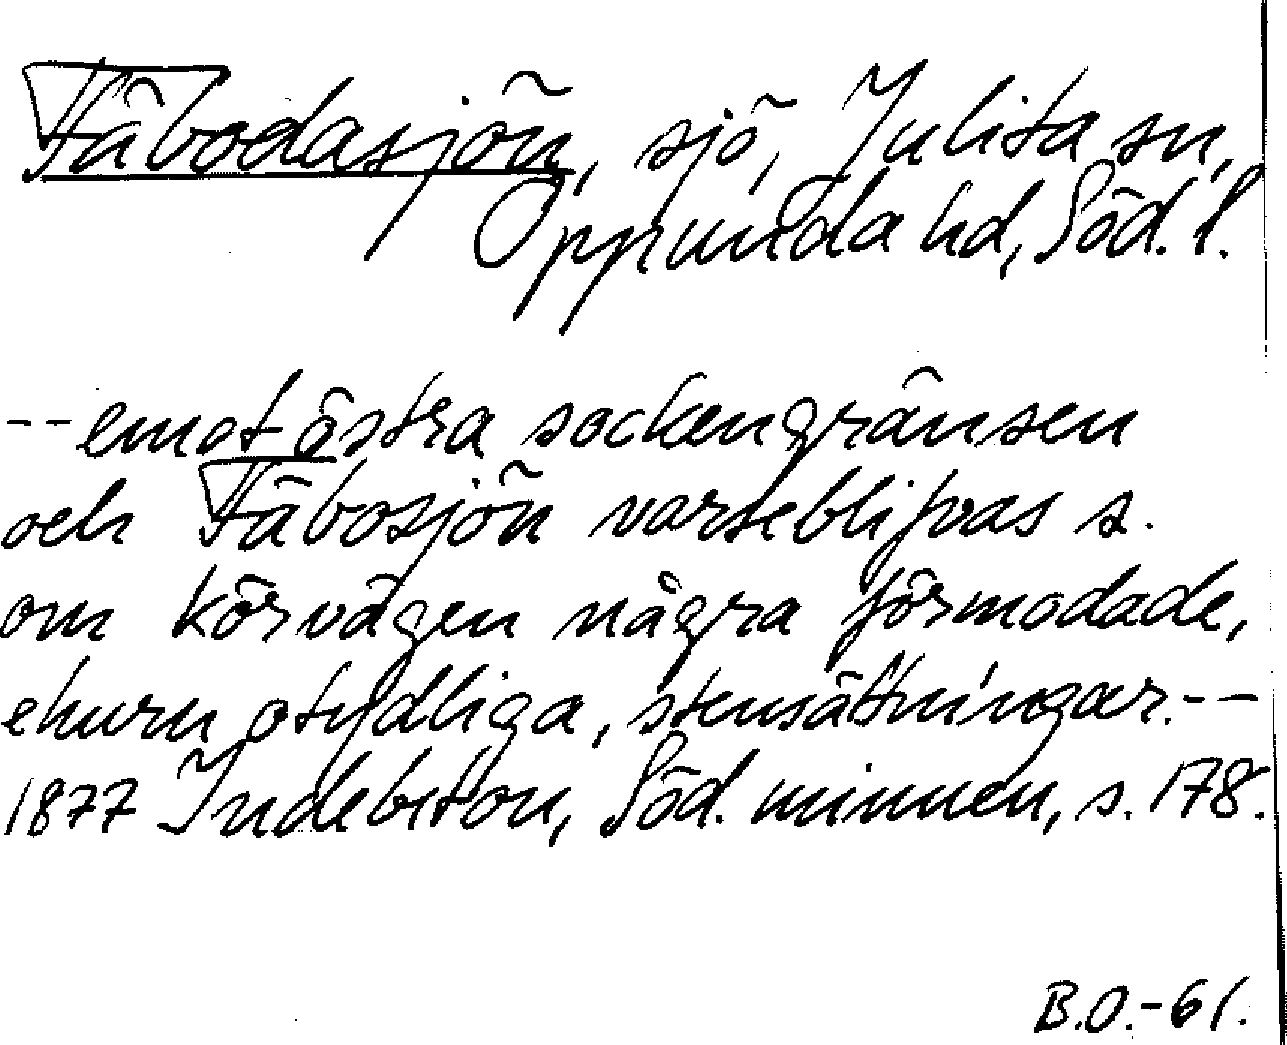 Fäbodasjön, sjö, Julita sn,
Oppunda hd, Söd. l.
-- emot östra sockengränsen
och Fäbosjön varseblifvas s.
om körvägen några förmodade,
ehuru otydliga, stensättningar. --
1877 Indebetou, Söd. minnen, s. 178.
B.O.-61.